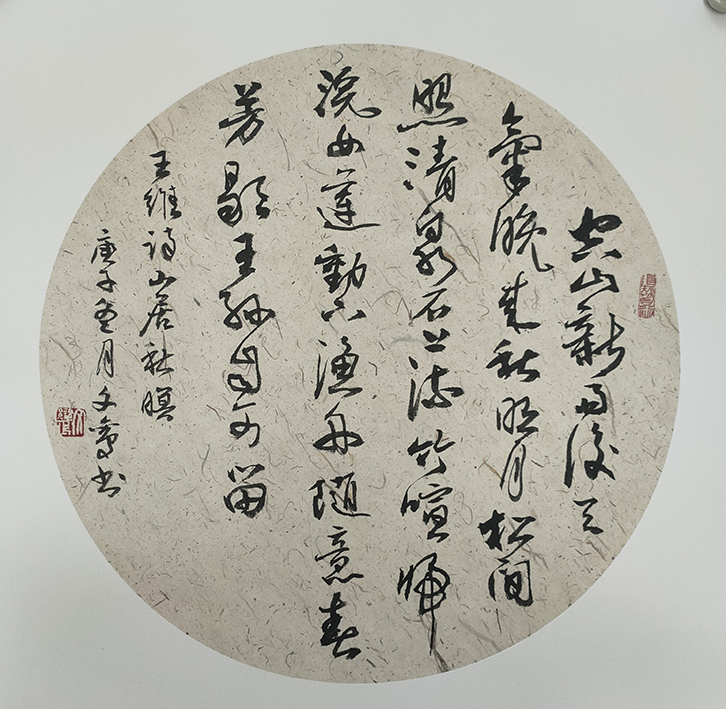 空山新雨後天
氣晚来秋明月松間
照清泉石上流竹喧歸
浣女蓮動下漁舟隨意春
芳歇王孫自可留
王維詩山居秋暝
庚子冬月文书